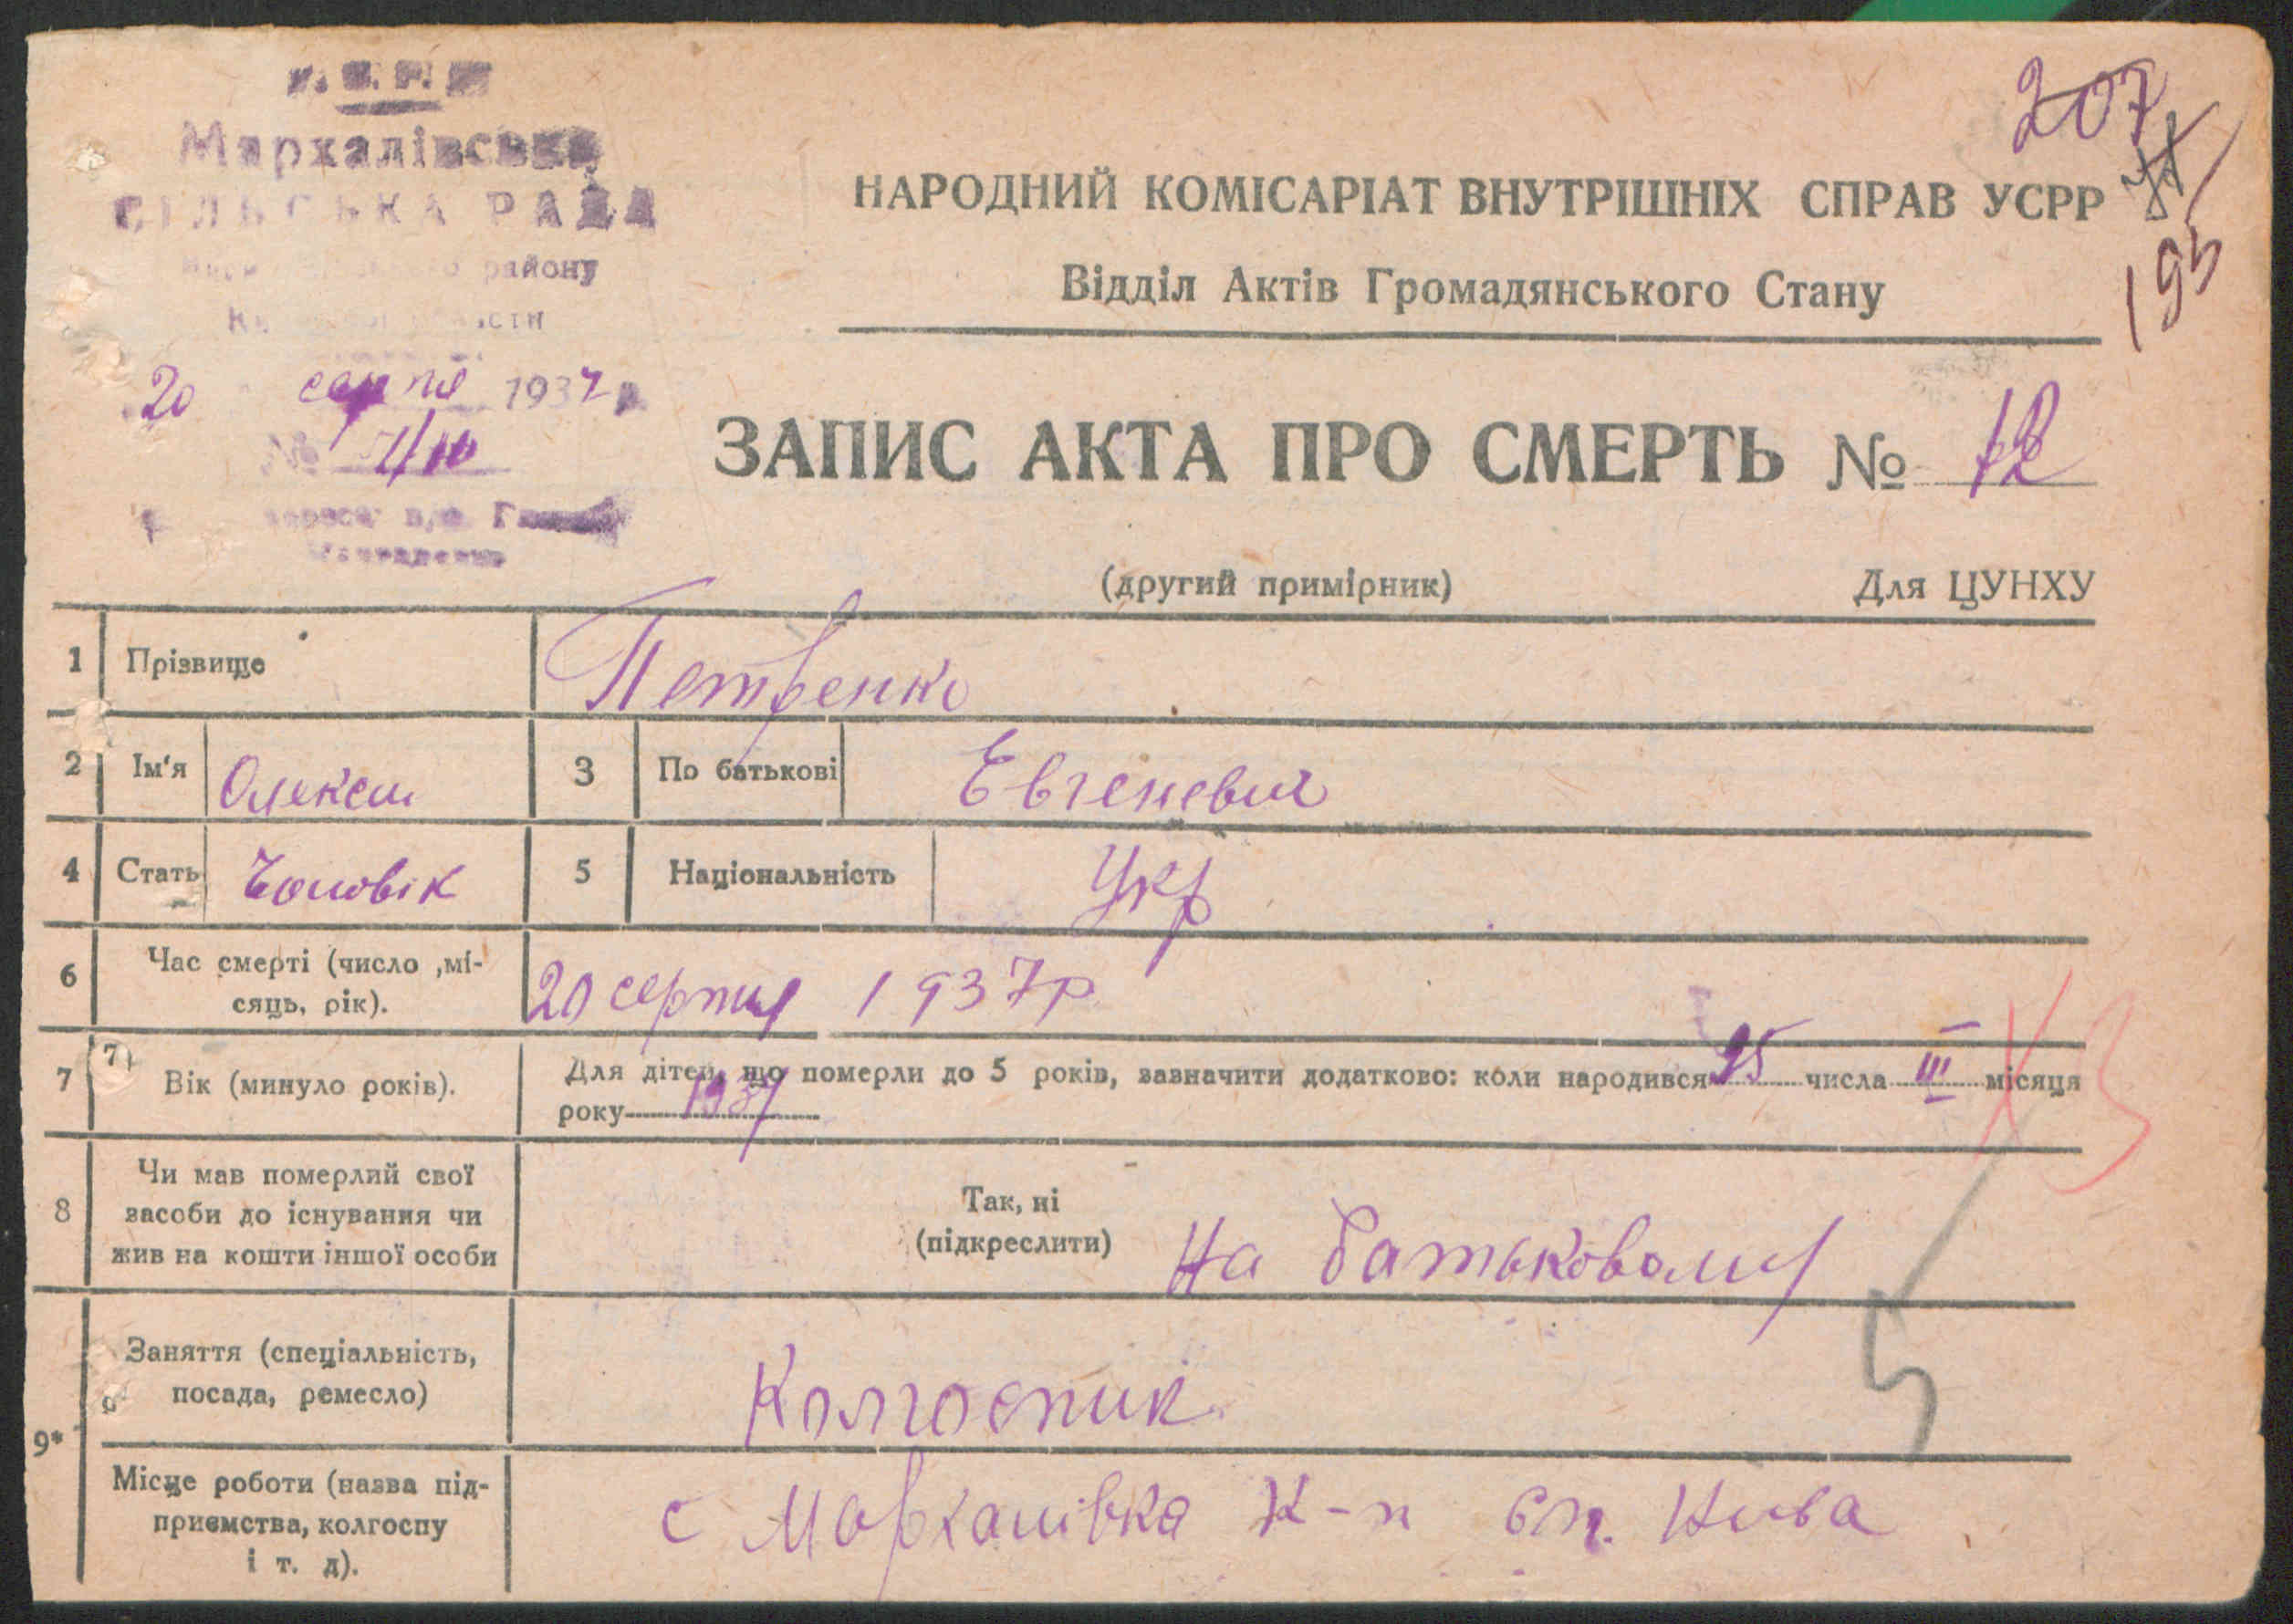 Мархалівська
СІЛЬСЬКА РАДА
району
20 серпня 1937 р
№
207
195
НАРОДНИЙ КОМІСАРІАТ ВНУТРІШНІХ СПРАВ УСРР
Відділ Актів Громадянського Стану
ЗАПИС АКТА ПРО СМЕРТЬ № 12
(другий примірник) Для ЦУНХУ
1 Прізвище Петренко
2 Ім'я Олексій 3 По батькові Евгеневич
4 Стать Чоловік 5 Національність Укр
6 Час смерті (число ,мі-
сяць, рік). 20 серпня 1937р
7 7) Вік (минуло років). Для дітей, що померли до 5 років, зазначити додатково: коли народився 25 числа III місяця
року 1937
8 Чи мав померлий свої
засоби до існування чи
жив на кошти іншої особи
Так, ні
(підкреслити) На батьковому
5
9* Заняття (спеціальність,
посада, ремесло) Колгоспник
Місце роботи (назва під-
приємства, колгоспу
і т. д). с Мархалівка К-п Нива